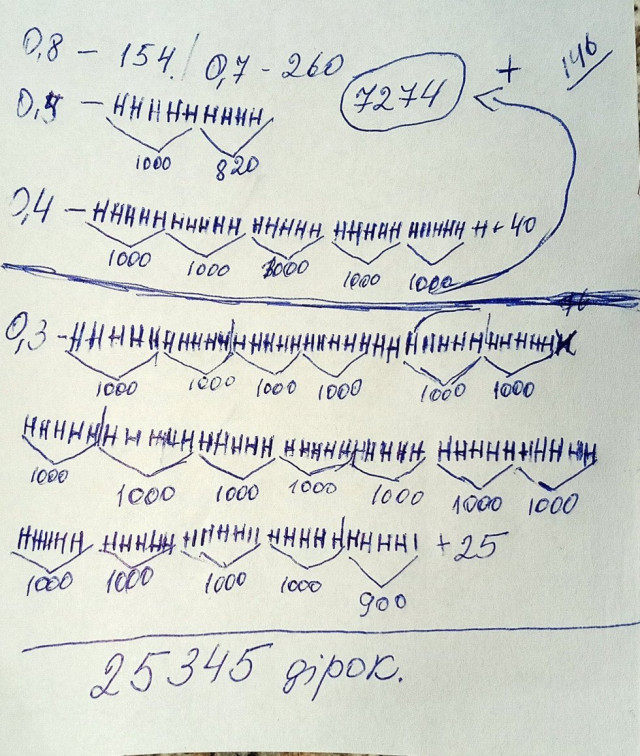 0,8 – 154. / 0,7 - 260
7274 + 146
0,5 – ННННННННН
1000 820
0,4 – Н + 40
1000 1000 1000 1000 1000
0,3 –
1000 1000 1000 1000 1000 1000
1000 1000 1000 1000 1000 1000 1000
+ 25
1000 1000 1000 1000 900
25345 дірок.